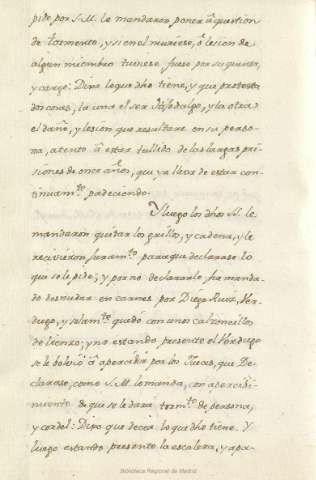 pido, por S.M. le mandaron poner á question
de tormento, y si en el muriese, ó lesion de
algun miembro tuviese, fuese por su quenta,
y cargo: Dixo lo que dho tiene, y que protesta
dos cosas, la una el ser Hijodalgo, y la otra
el daño, y lesion que resultare en su perso-
na, atento á estar tullido de las largas pri-
siones de once años, que va llevar de estar con-
tinuamte padeciendo.
Y luego los dhos SS. le
mandaron quitar los grillos, y cadena, y le
recivieron juramto para que declarase lo
que se le pide; y por no declararlo fue manda-
do desnudar en carnes por Diego Ruiz, Ver-
dugo, y solamte quedó con unos calzoncillos
de lienzo; y no estando presente el Verdugo
se le bolvió á apercibir por los Jueces, que De-
clarase, como S.M. lo manda, con apercibi-
miento de que se le dará tormto de persona,
y cordel: Dixo que decia lo que dho tiene. Y
luego estando presente la escalera, y apa-
Biblioteca Regional de Madrid